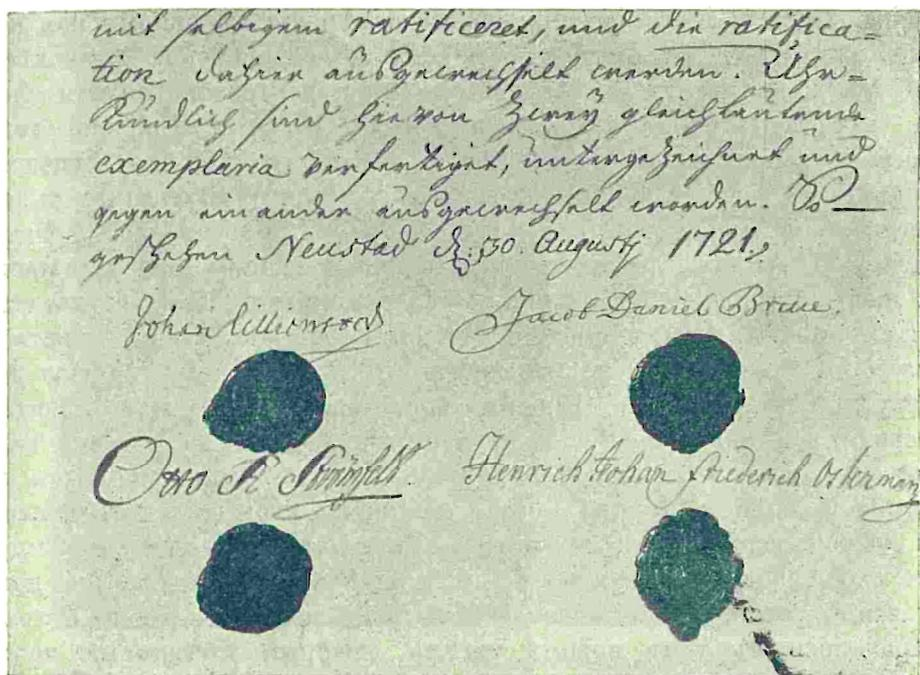 mit selbigem ratificeret, und die ratifica=
tion dahier ausgewechselt werden. Uhr=
kundlich sind hievon zwey gleichlautende
exemplaria verfertiget, untergezeichnet und
gegen einander ausgewechselt worden. So
geschehen Neustad d. 30. Augustj 1721.
Johan Lillienstedt Jacob Daniel Bruce.
Otto R Strömfelt. Henrich Johan friederich Osterman